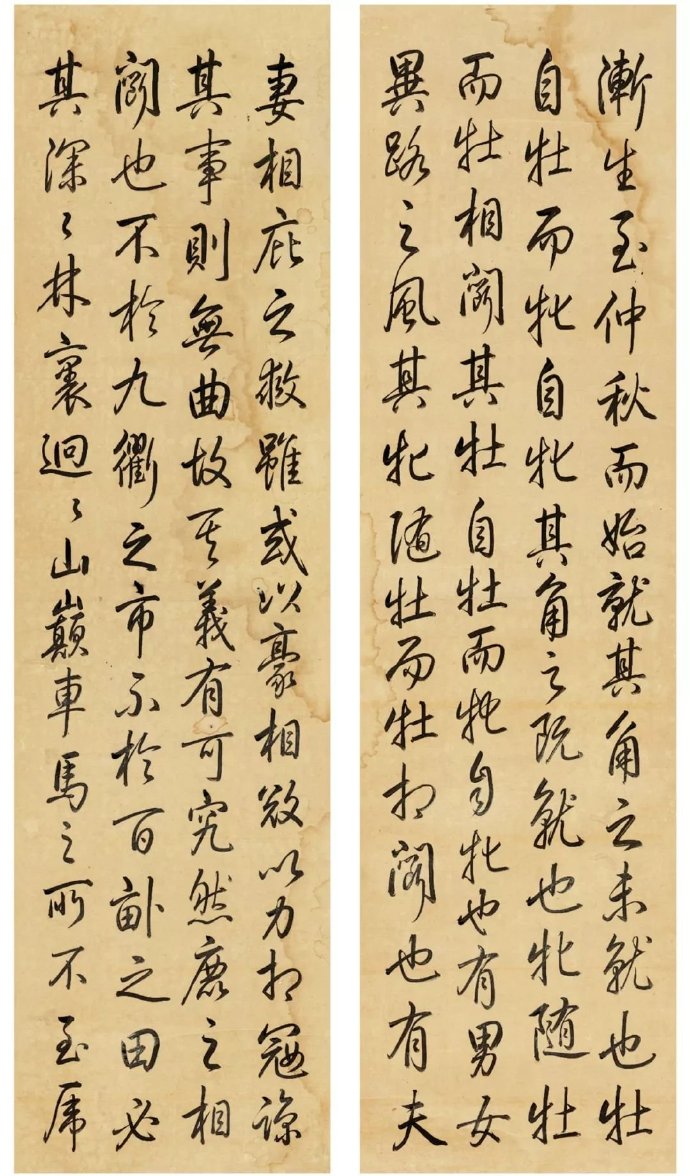 漸生至仲秋而始就其角之未就也牡
自牡而牝自牝其角之既就也牝隨牡
而牡相鬪其牡自牡而牝自牝也有男女
異路之風其牝随牡而牡相鬪也有夫
妻相庇之救雖或以豪相欲以力相寇諒
其事則無曲故其義有可究然鹿之相
鬪也不於九衢之市不於百畝之田必
其深々林裏迥々山巔車馬之所不至虎